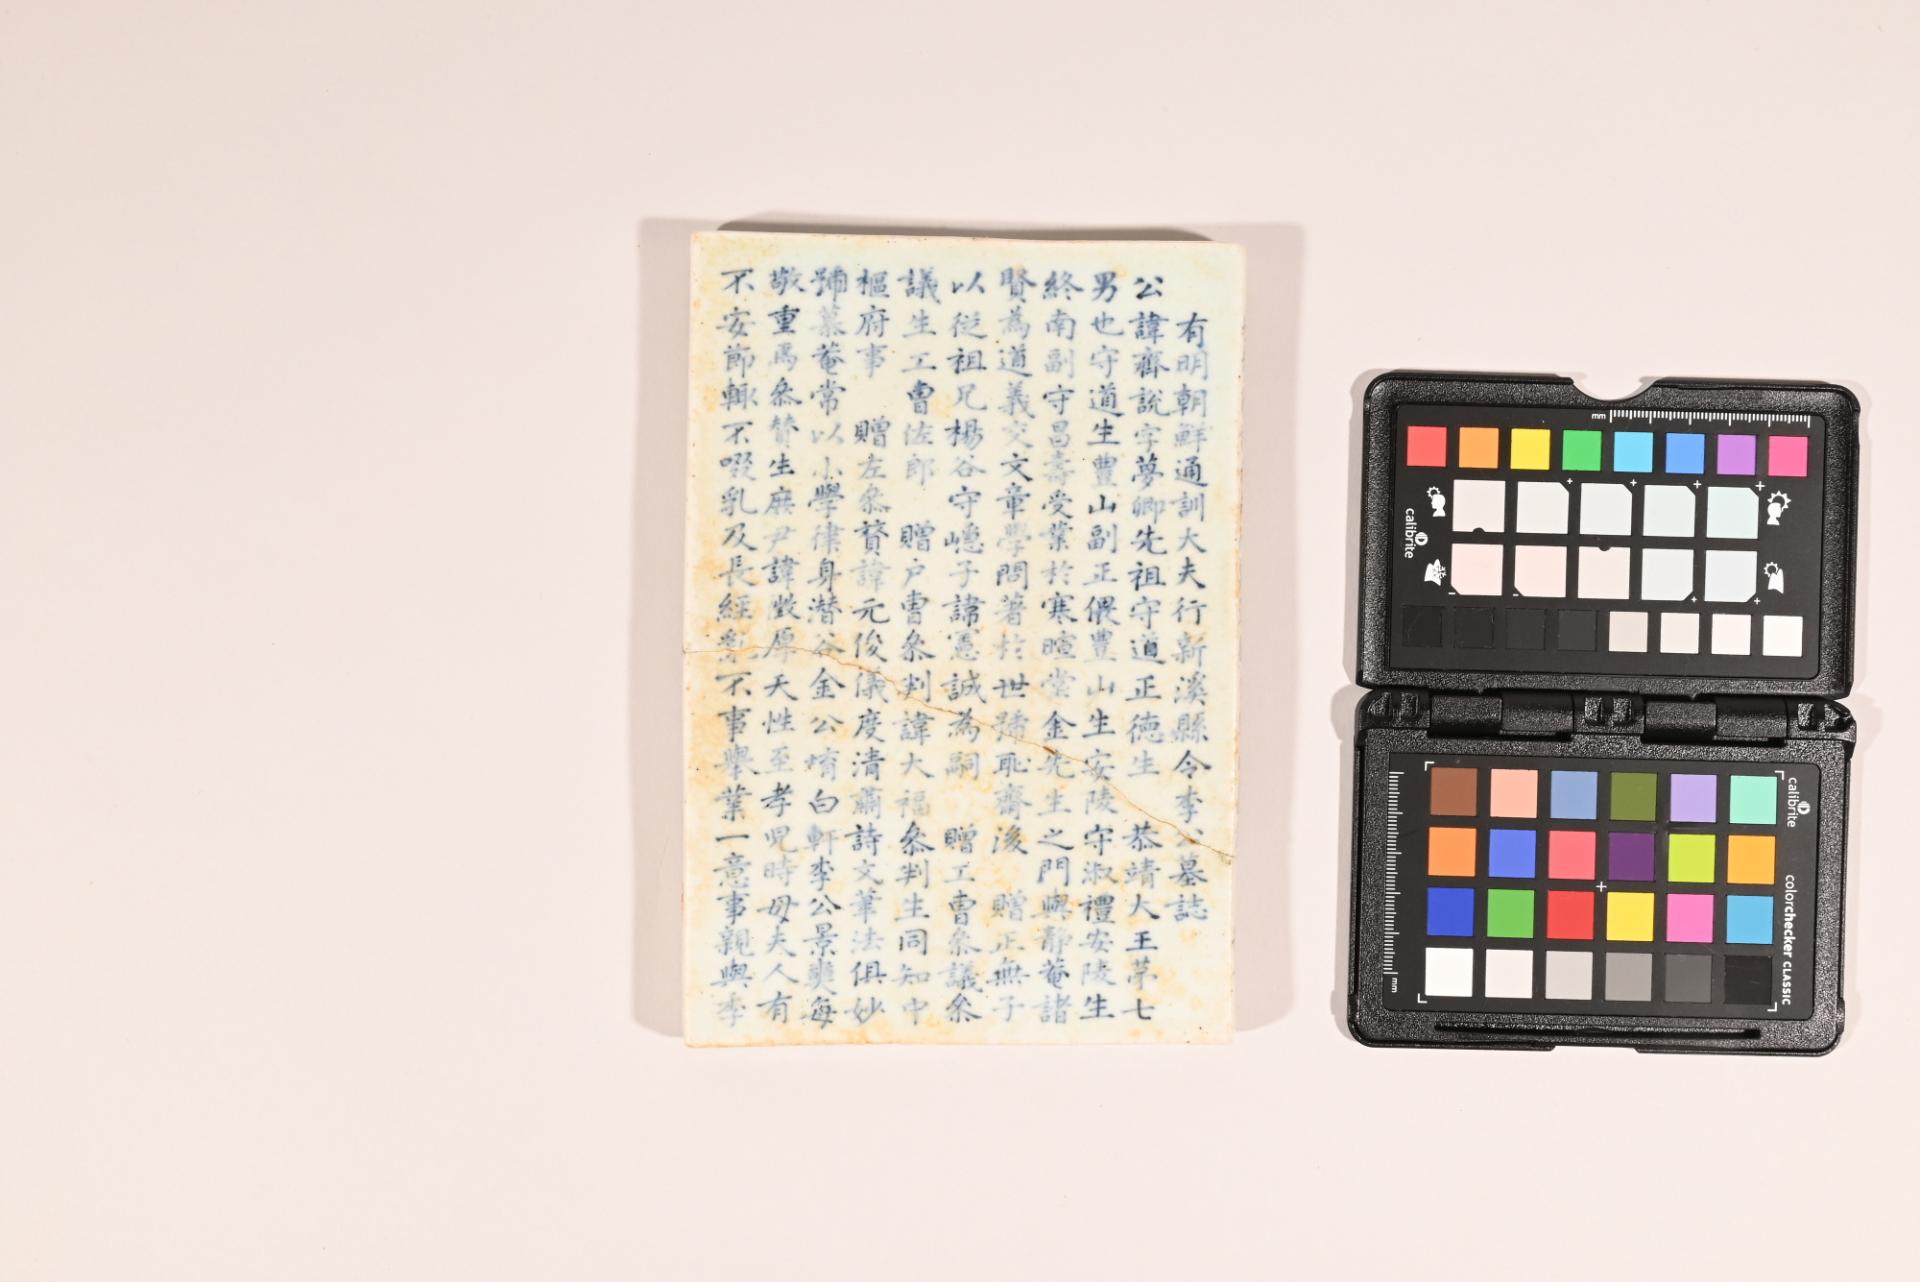 有明朝鮮通訓大夫行新溪縣令李公墓誌
公諱齊說字夢卿先祖守道正德生 恭靖大王苐七
男也守道生豊山副正偎豊山生安陵守淑禮安陵生
終南副守昌壽受業於寒暄堂金先生之門與靜菴諸
賢為道義交文章學問著於世號恥齋後 贈正無子
以從祖兄楊谷守嶾子諱憲誠為嗣 贈工曹叅議叅
議生工曹佐郎 贈戶曹叅判諱大福叅判生同知中
樞府事 贈左叅賛諱元俊儀度清肅詩文筆法俱妙
號慕菴常以小學律身潛谷金公堉白軒李公景奭每
敬重焉叅賛生庶尹諱徵厚天性至孝兒時母夫人有
不安節輒不啜乳及長經亂不事擧業一意事親與季
calibrite
calibrite
colorchecker CLASSIC
mm
mm